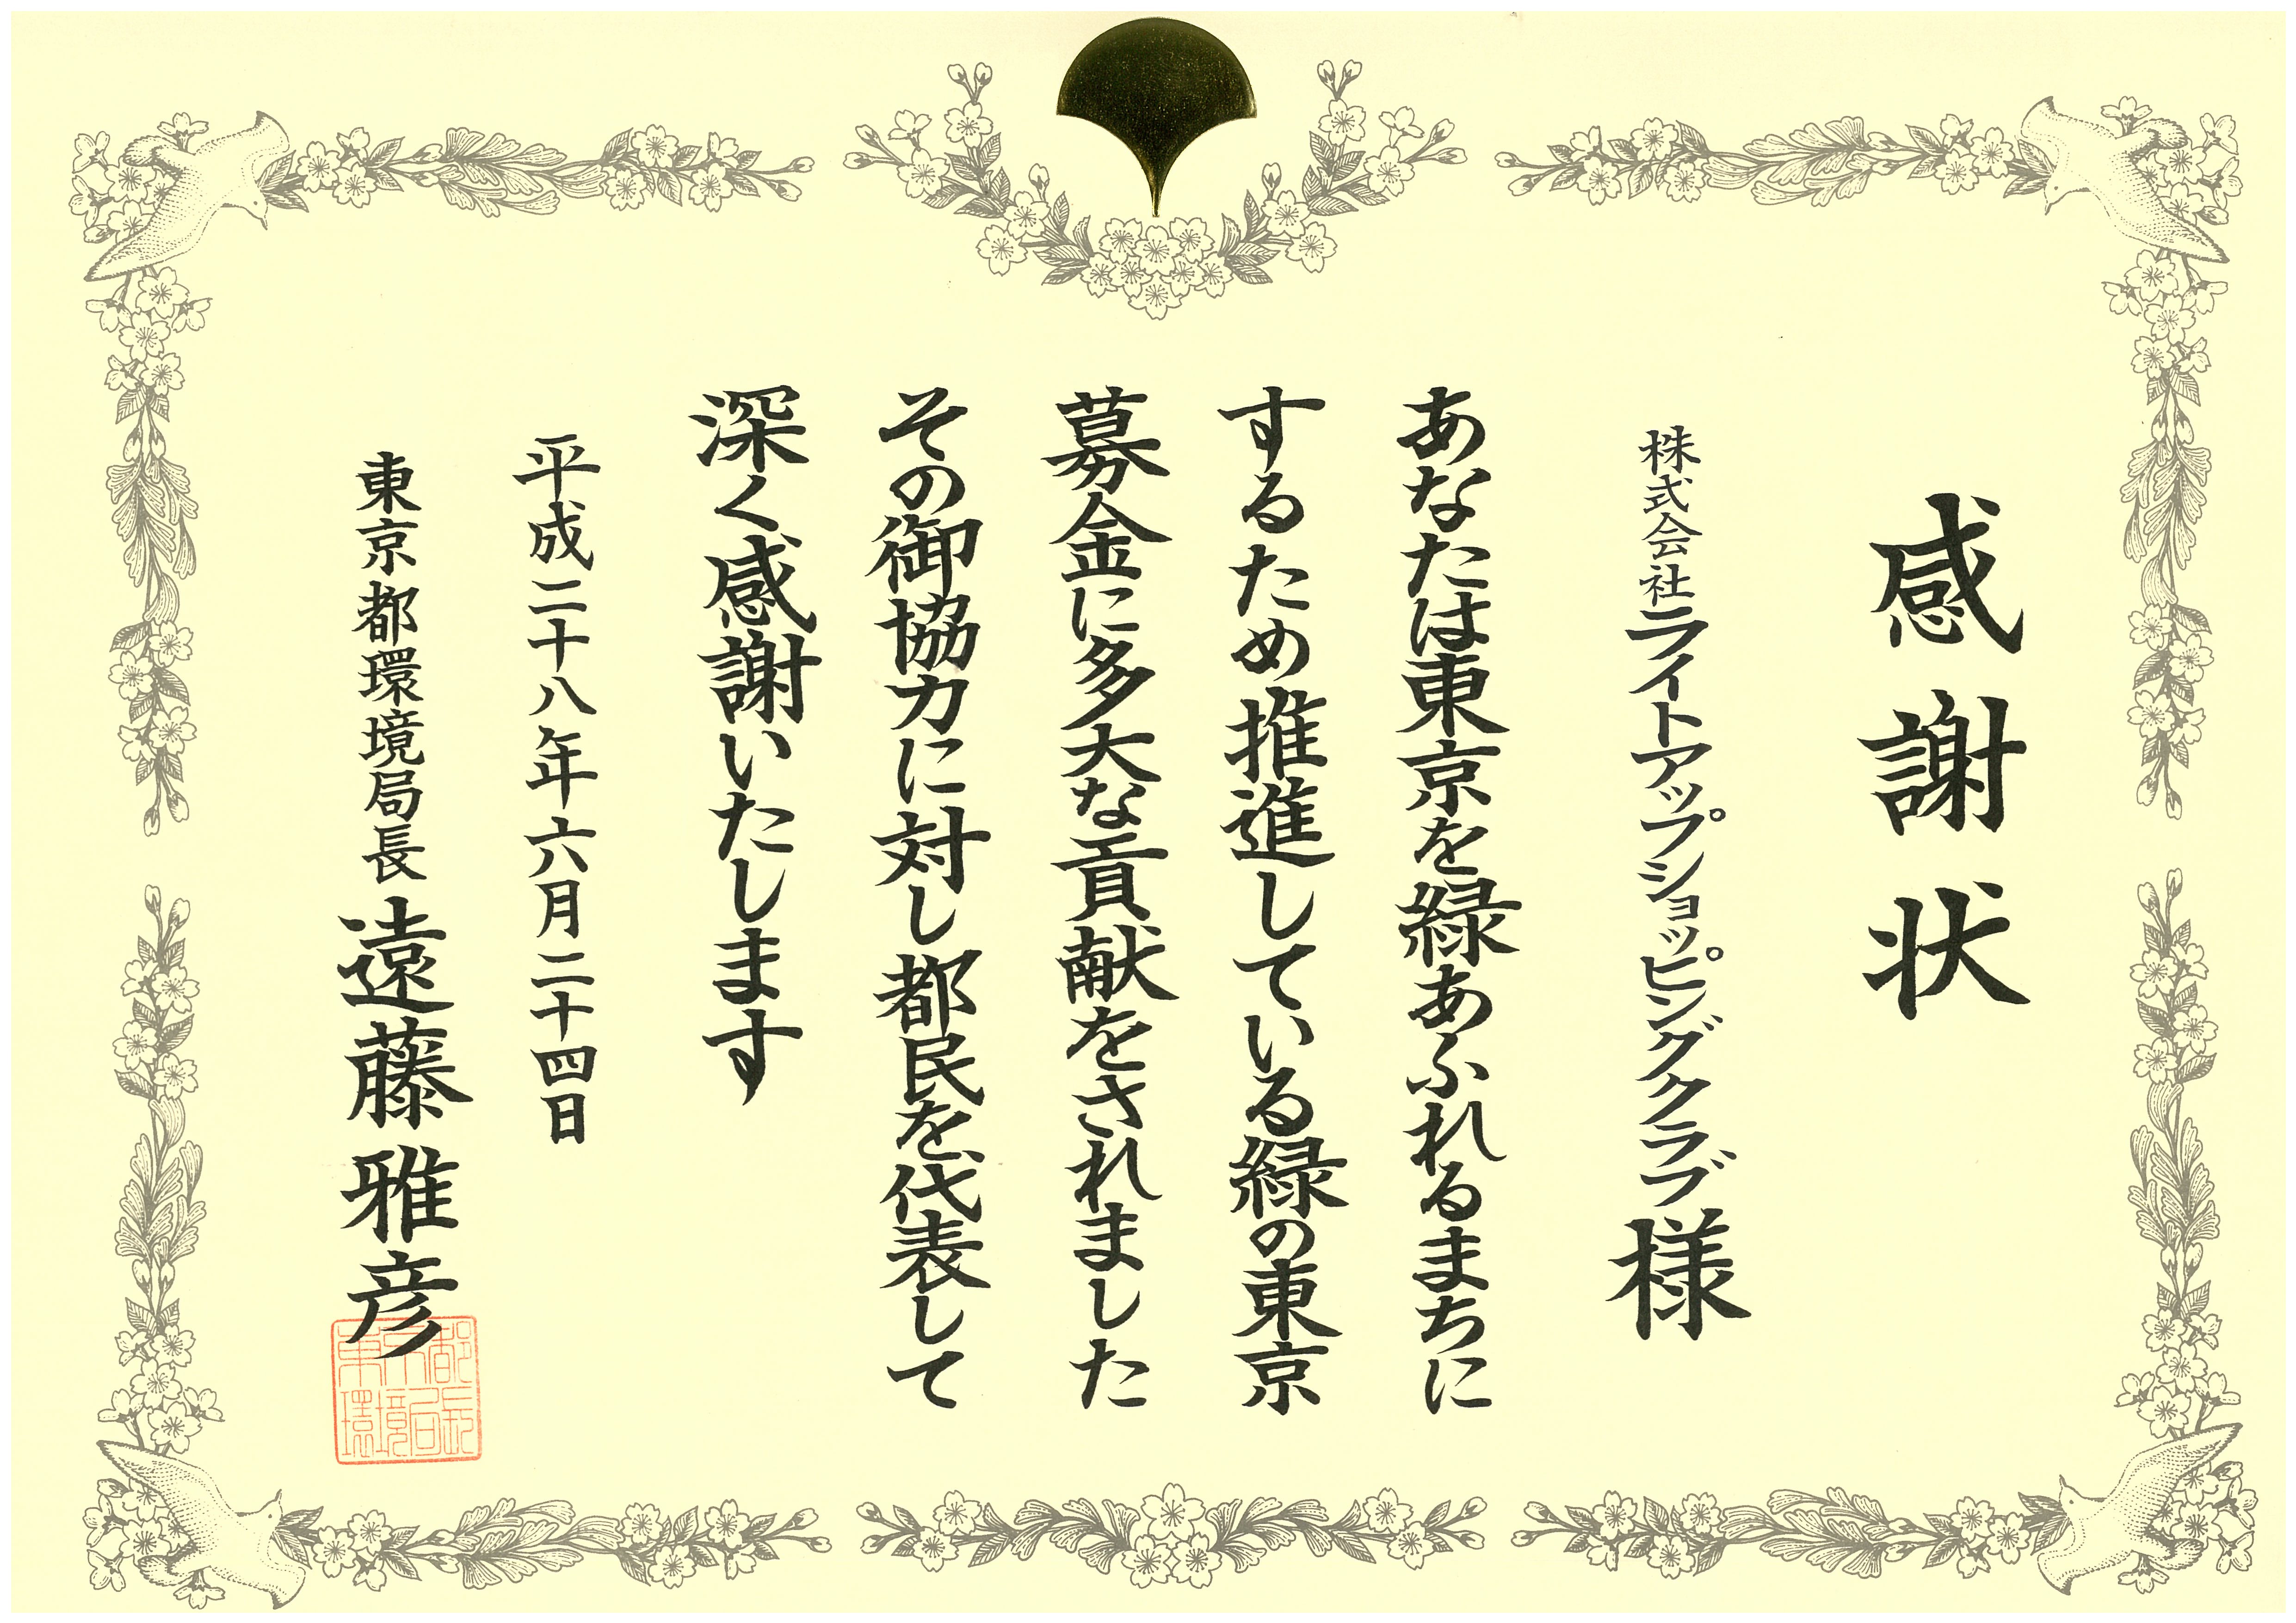 感謝状
株式会社ライトアップショッピングクラブ様
あなたは東京を緑あふれるまちに
するため推進している緑の東京
募金に多大な貢献をされました
その御協力に対し都民を代表して
深く感謝いたします
平成二十八年六月二十四日
東京都環境局長 遠藤雅彦
東京都環境局長